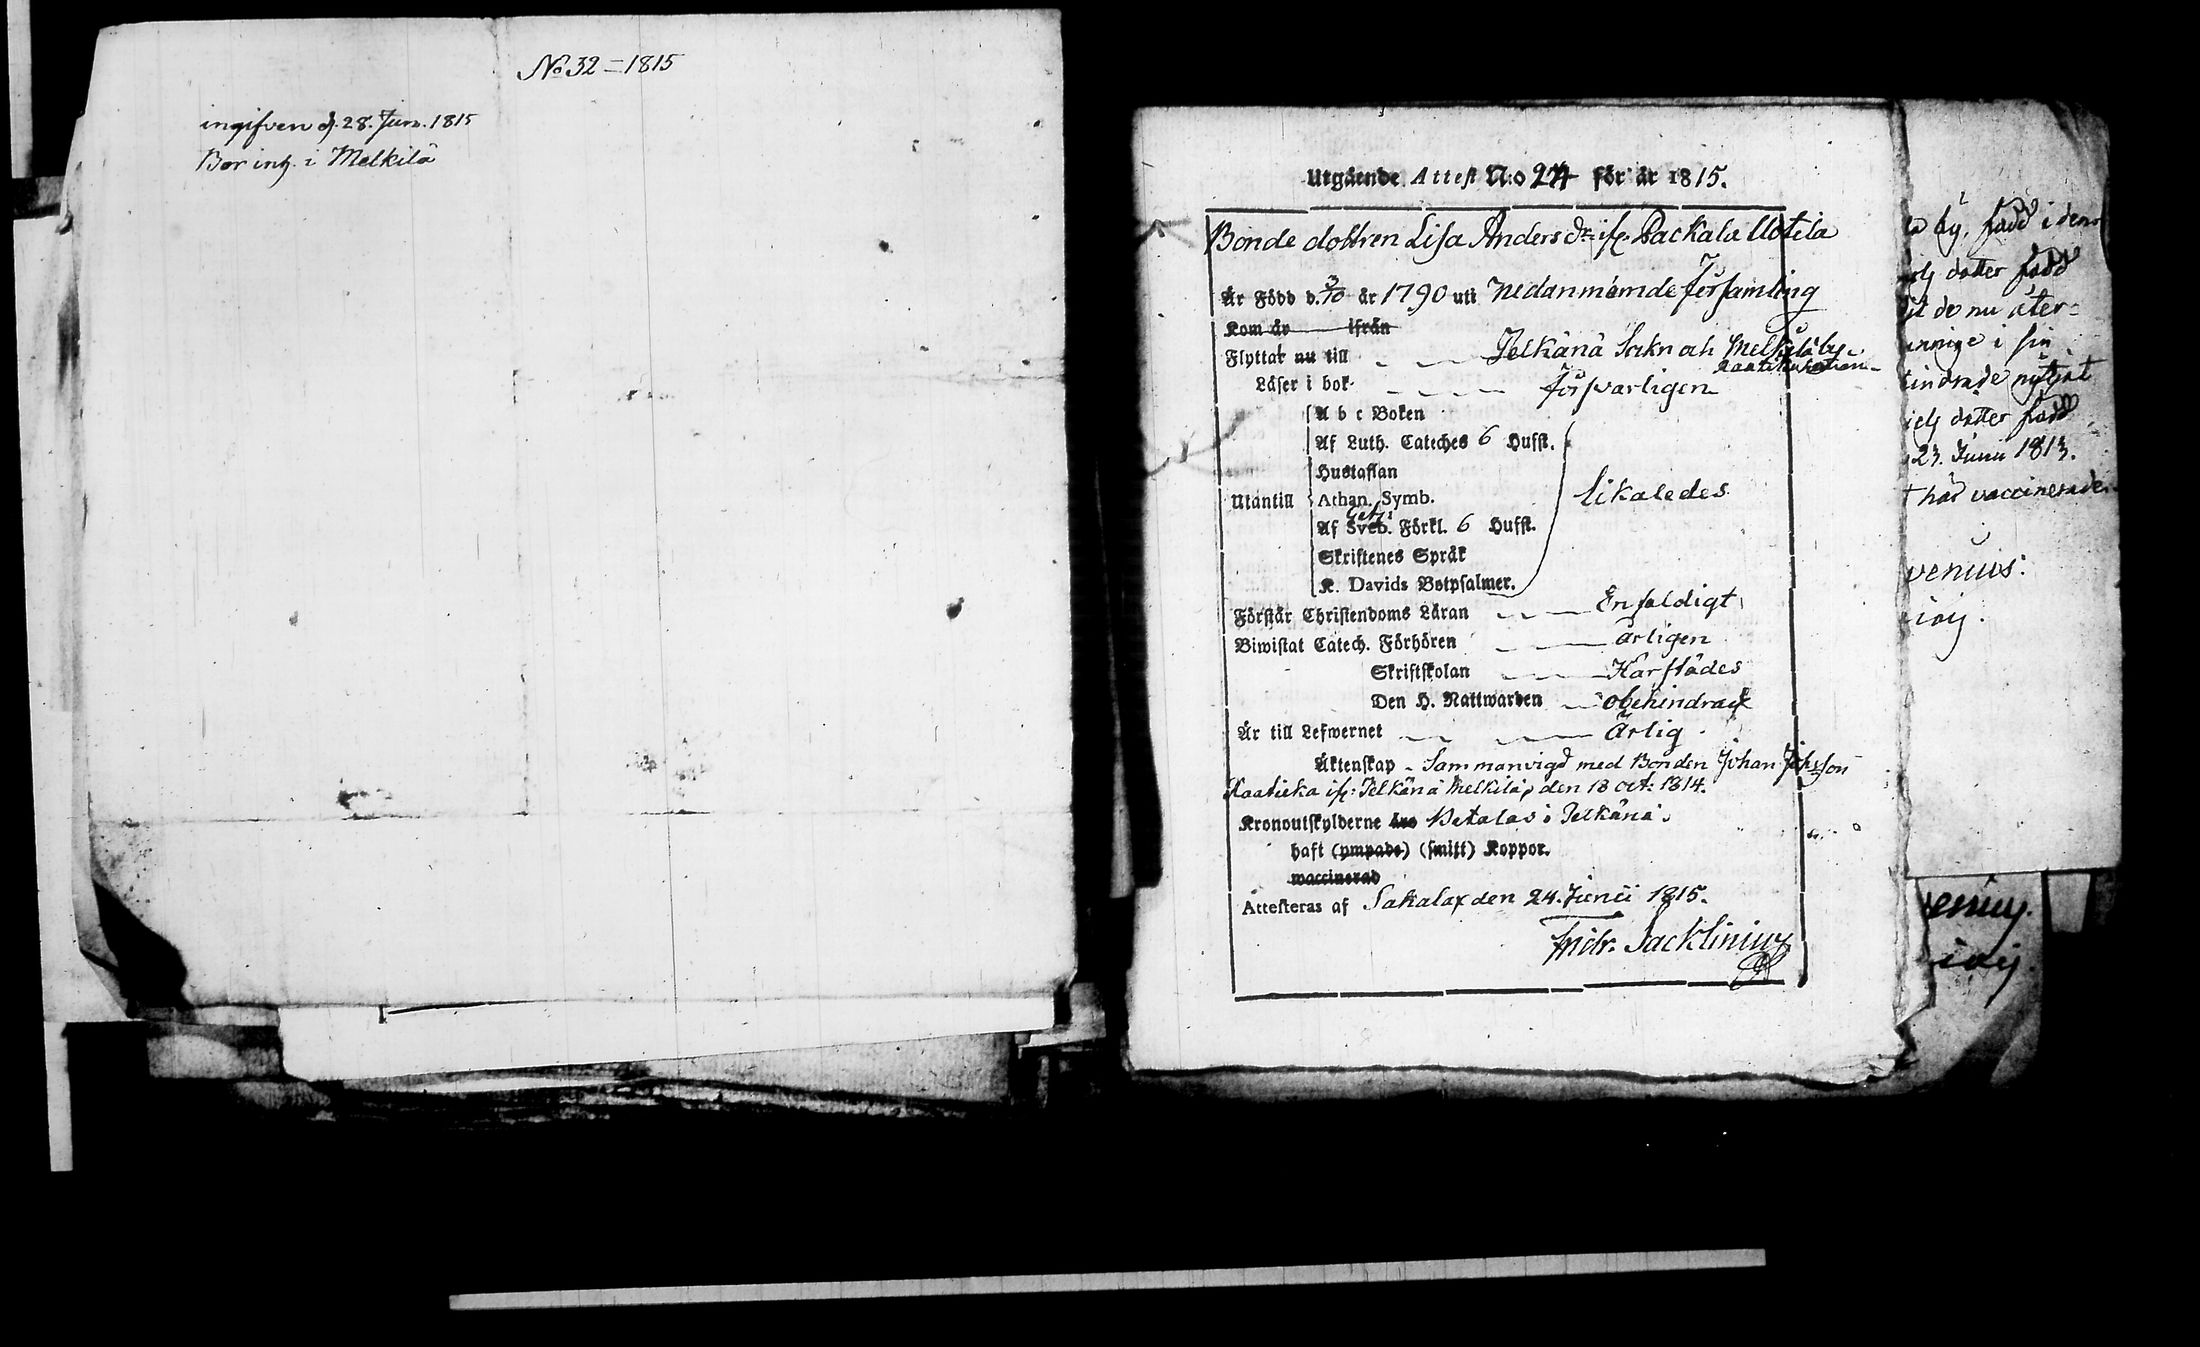 No 32 = 1815
ingifven d. 28. Jun. 1815
Bor inh. i Melkilä
Utgående Attest N:o 24 för år 1815.
Bonde dottren Lisa Anders dr: ifr. Packala Uotila
Är Född d. 3/10 år 1790 uti Nedannämde församling
Kom år ifrån
Flyttar nu till Jelkänä Sokn och Melkilä by
Läser i bok försvarligen
A b c Boken
Af Luth. Cateches 6 Hufst.
Hustaflan
Utantill Athan. Symb. likaledes
Af Sveb. Förkl. 6 Hufst.
Skriftenes Språk
K. Davids Botpsalmer.
Förstår Christendoms Läran Enfaldigt
Biwistat Catech. Förhören årligen
Skriftskolan Härstädes
Den H. Nattwarden obehindrad
Är till Lefwernet Ärlig
Äktenskap Sammanvigd med Bonden Johan Johsson
Kaaticka ifr: Jelkänä Melkilä, den 18 oct: 1814.
Kronoutskylderne äro Betalas i Jelkänä.
haft (ympade) (smitt) Koppor.
waccinerad
Attesteras af Sakalax den 24. Junii 1815.
Fridr. Jacklinius
by, född i denn
dotter född
de nu åter-
i sin
dotter född
23. Junii 1813.
här vaccinerade
venius: